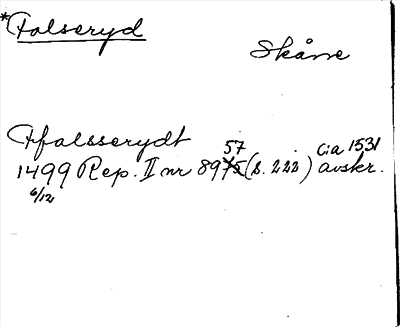 *Falseryd
Skåne
Ffalsserydt
1499 Rep. II nr 8957 (s. 222) cia 1531 avskr.
6/12